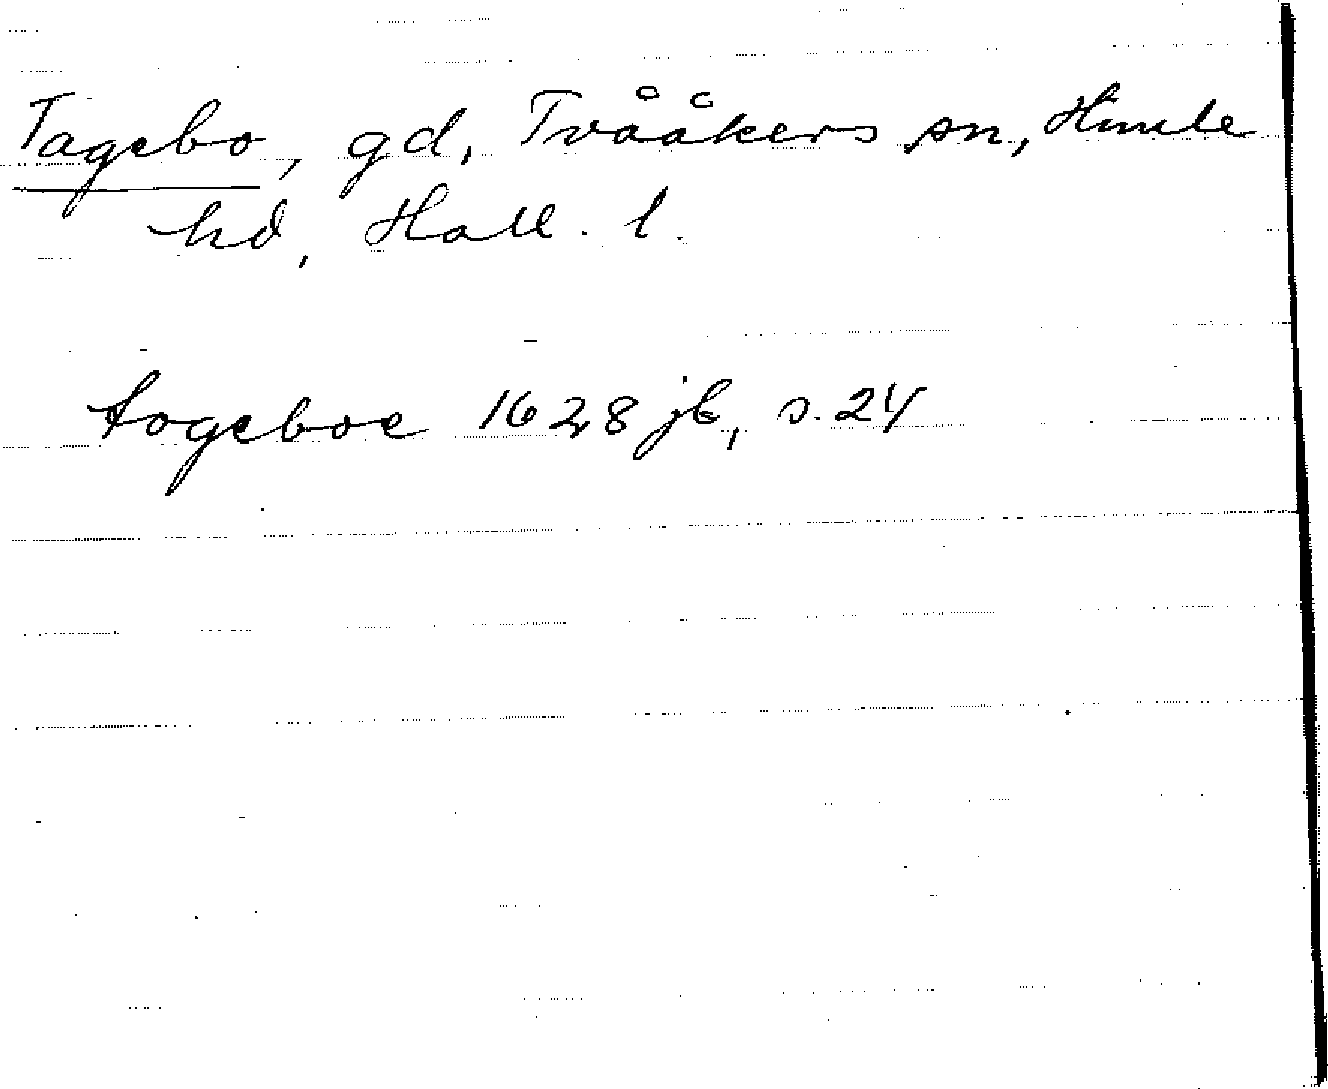 Tagebo, gd, Tvååkers sn, Himle
hd, Hall. l.
togeboe 1628 jb, s. 24